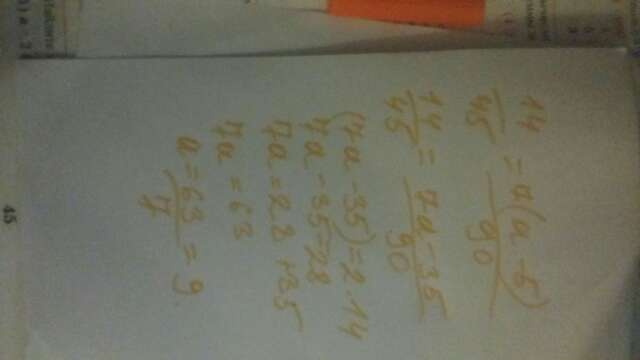 14/45 = 7(a-5)/90
14/45 = 7a-35/90
(7a-35)=2·14
7a-35=28
7a=28+35
7a=63
a=63/7=9
45